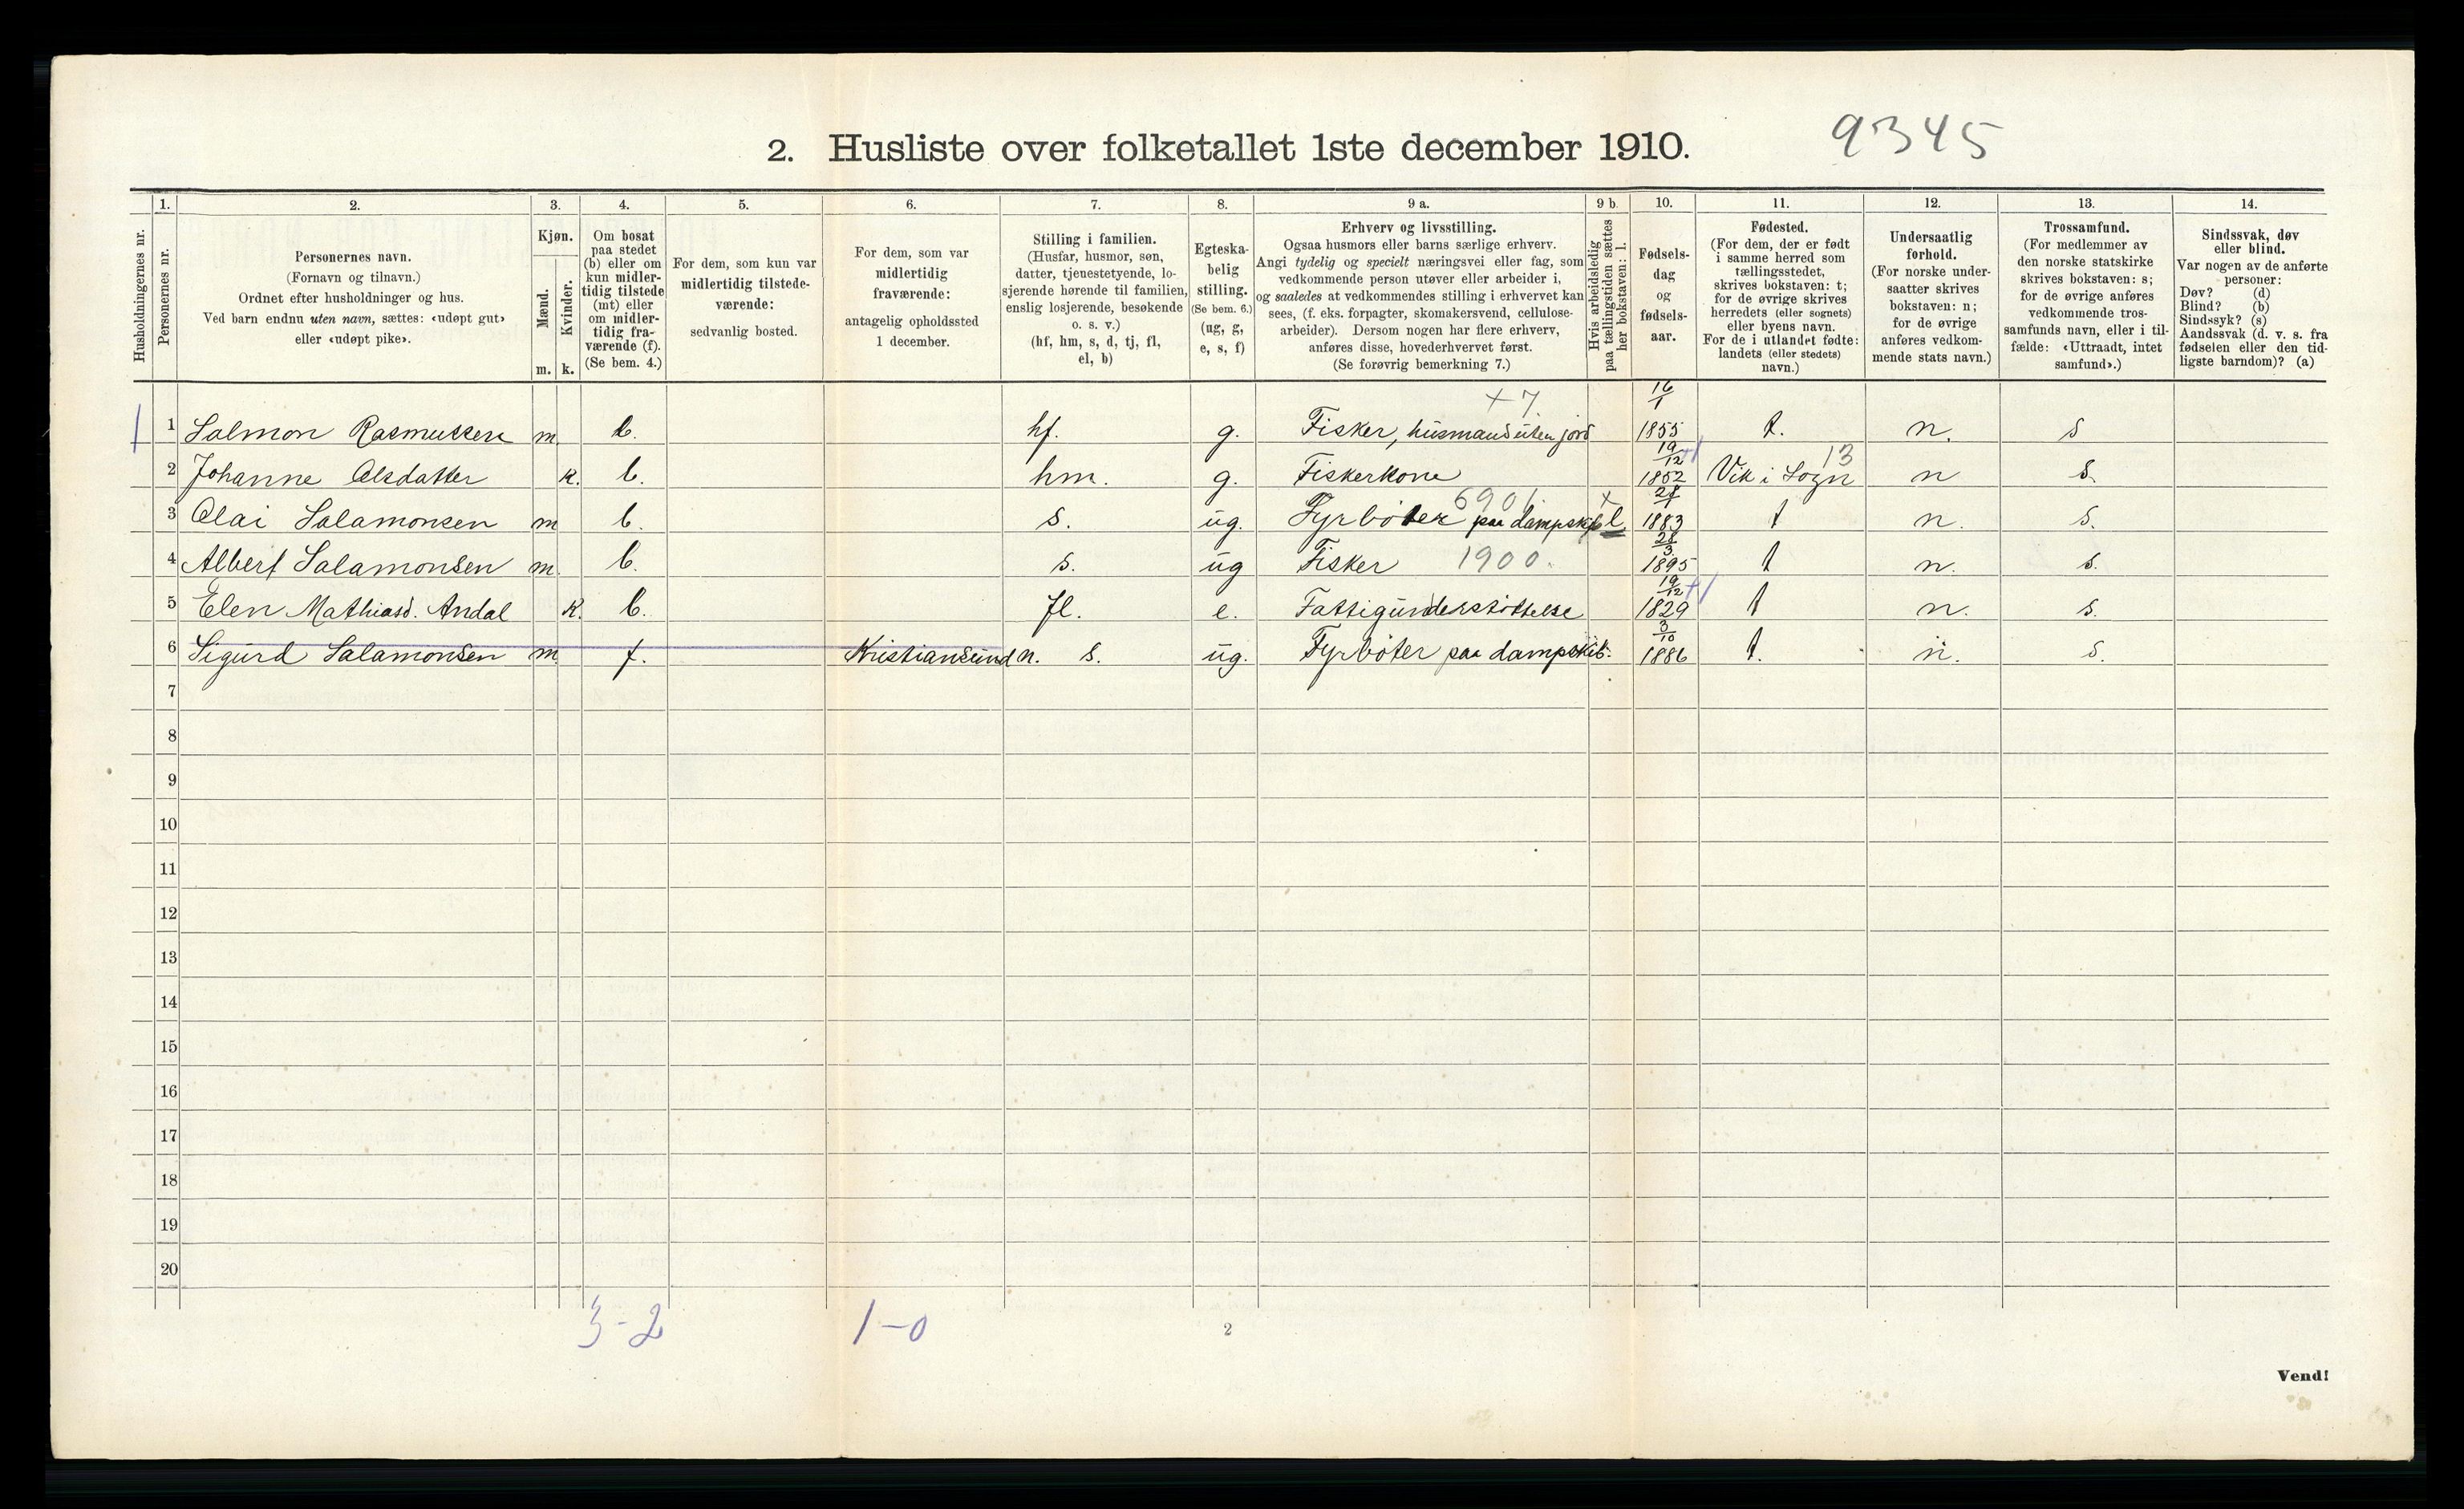 2. Husliste over folketallet 1ste december 1910.
9345
Husholdningernes nr.
1.
Personernes nr.
2.
Personernes navn.
(Fornavn og tilnavn.)
Ordnet efter husholdninger og hus.
Ved barn endnu uten navn, sættes: «udøpt gut»
eller «udøpt pike».
3.
Kjøn.
Mænd.
Kvinder.
m.
k.
4.
Om bosat
paa stedet
(b) eller om
kun midler-
tidig tilstede
(mt) eller
om midler-
tidig fra-
værende (f).
(Se bem. 4.)
5.
For dem, som kun var
midlertidig tilstede-
værende:
sedvanlig bosted.
6.
For dem, som var
midlertidig
fraværende:
antagelig opholdssted
1 december.
7.
Stilling i familien.
(Husfar, husmor, søn,
datter, tjenestetyende, lo-
sjerende hørende til familien,
enslig losjerende, besøkende
o. s. v.)
(hf, hm, s, d, tj, fl,
el, b)
8.
Egteska-
belig
stilling.
(Se bem. 6.)
(ug, g,
e, s, f)
9 a.
Erhverv og livsstilling.
Ogsaa husmors eller barns særlige erhverv.
Angi tydelig og specielt næringsvei eller fag, som
vedkommende person utøver eller arbeider i,
og saaledes at vedkommendes stilling i erhvervet kan
sees, (f. eks. forpagter, skomakersvend, cellulose-
arbeider). Dersom nogen har flere erhverv,
anføres disse, hovederhvervet først.
(Se forøvrig bemerkning 7.)
9 b.
Hvis arbeidsledig
paa tællingstiden sættes
her bokstaven: l.
10.
Fødsels-
dag
og
fødsels-
aar.
11.
Fødested.
(For dem, der er født
i samme herred som
tællingsstedet,
skrives bokstaven: t;
for de øvrige skrives
herredets (eller sognets)
eller byens navn.
For de i utlandet fødte:
landets (eller stedets)
navn.)
12.
Undersaatlig
forhold.
(For norske under-
saatter skrives
bokstaven: n;
for de øvrige
anføres vedkom-
mende stats navn.)
13.
Trossamfund.
(For medlemmer av
den norske statskirke
skrives bokstaven: s;
for de øvrige anføres
vedkommende tros-
samfunds navn, eller i til-
fælde: «Uttraadt, intet
samfund».)
14.
Sindssvak, døv
eller blind.
Var nogen av de anførte
personer:
Døv? (d)
Blind? (b)
Sindssyk? (s)
Aandssvak (d. v. s. fra
fødselen eller den tid-
ligste barndom)? (a)
+7.
1 1 Salmon Rasmussen m. b. hf. g. Fisker, husmand uten jord 16/1 1855 t. n. s
13
2 Johanne Olsdatter k. b. hm. g. Fiskerkone 19/12 1852 Vik i Sogn n s.
6901.
3 Olai Salamonsen m b. s. ug. Fyrböter paa dampskib l. 1883 t n. s.
4 Albert Salamonsen m. b. s. ug Fisker 1900. 28/3 1895 t n. s.
5 Elen Mathiasd. Andal k. b. fl. e. Fattigunderstöttelse 19/12 1829 t n. s.
6 Sigurd Salamonsen m f. Kristiansund n. s. ug. Fyrböter paa dampskib. 3/10 1886 t. n. s.
7
8
9
10
11
12
13
14
15
16
17
18
19
20
3-2
1-0
2
Vend!